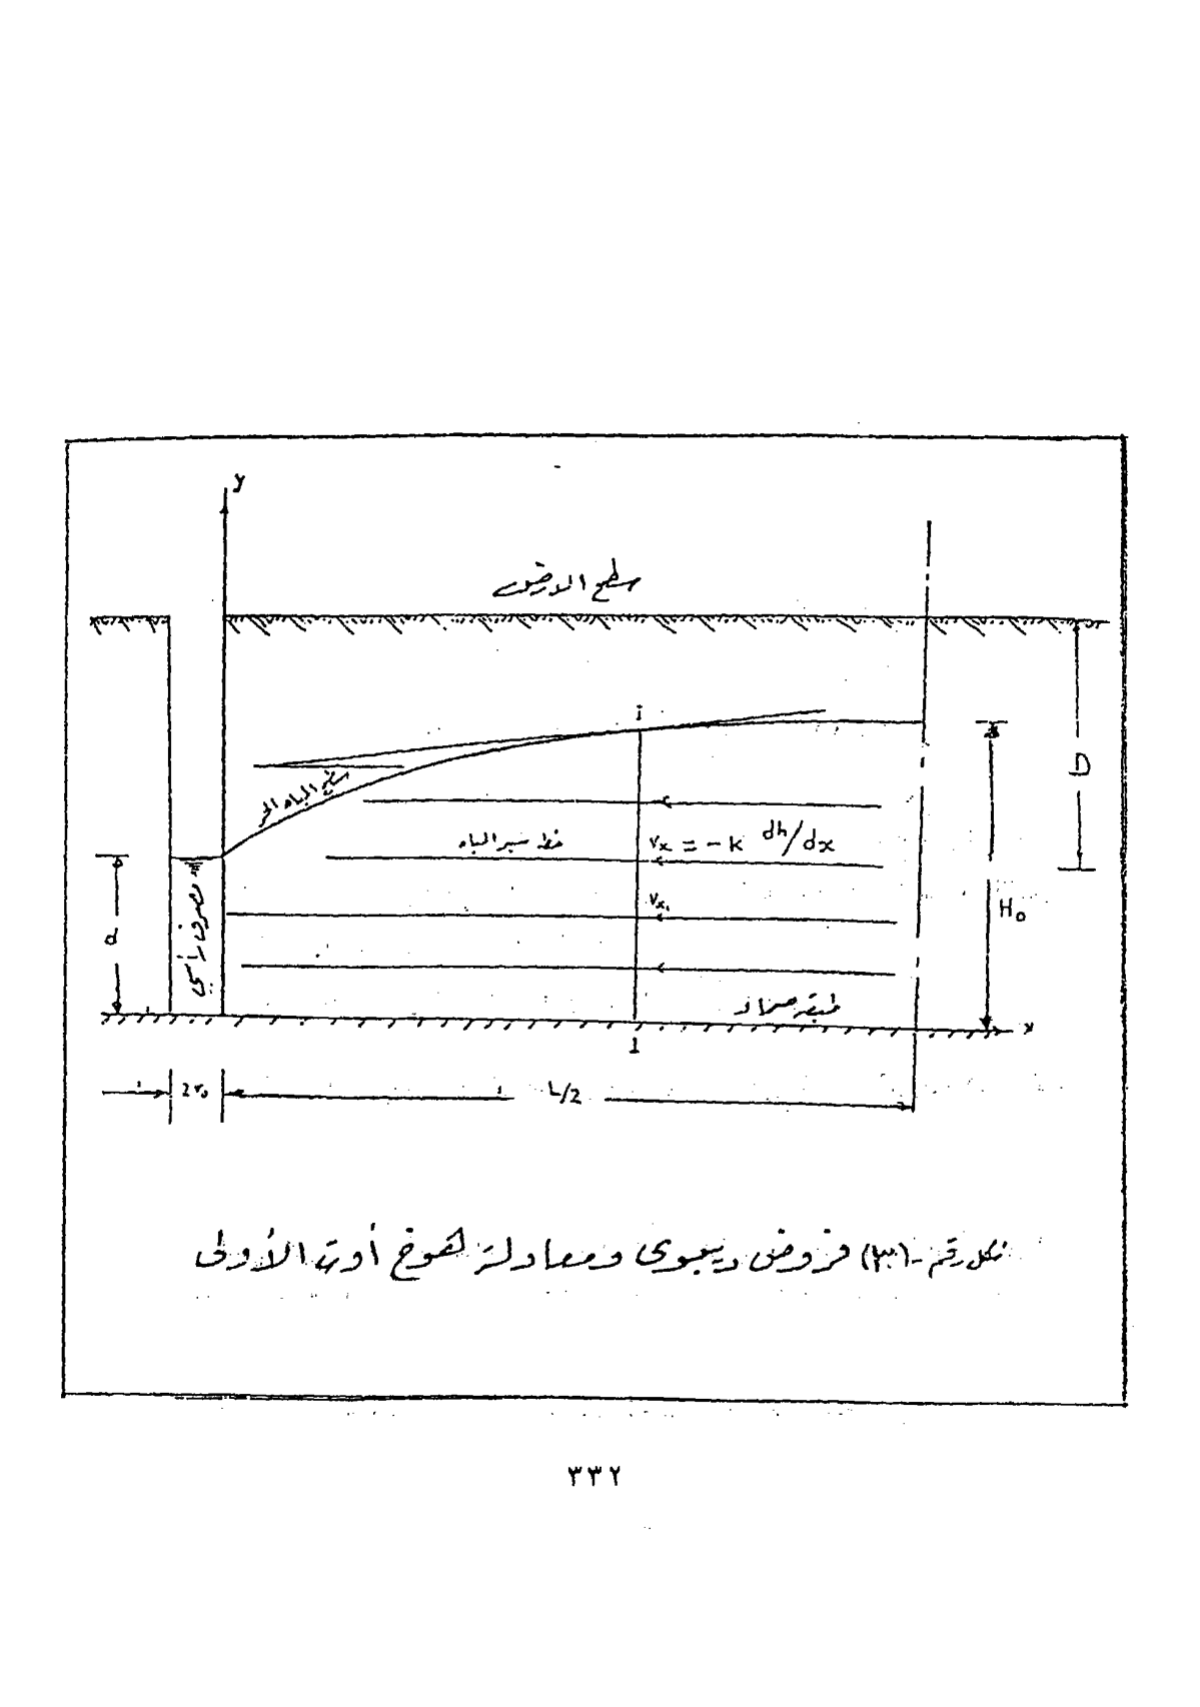 y
سطح الارض
i
D
سطح المياه الحر
خط سير المياه
vx = - k dh/dx
vx1
H₀
d
مصرف رأسي
طبقة صماء
x
1
2r₀
L/2
شكل رقم - (٣٠) فروض ديبوى ومعادلة هوخ أوت الأولى
٣٣٢